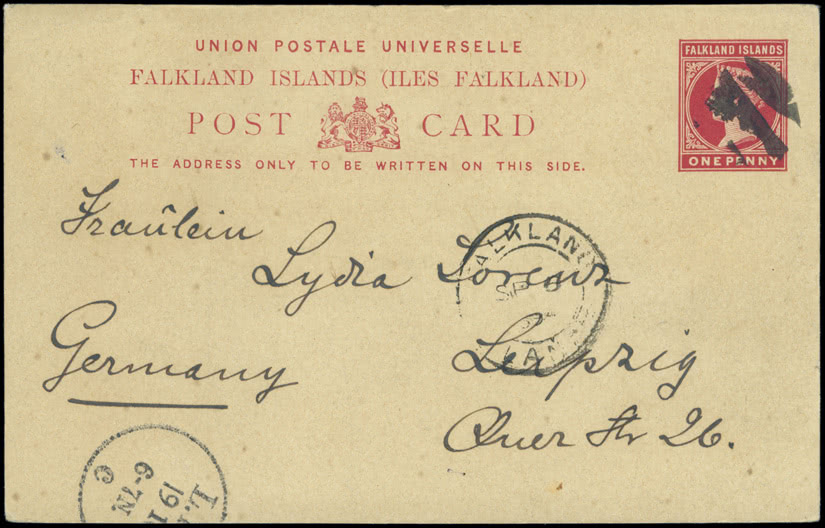 UNION POSTALE UNIVERSELLE
FALKLAND ISLANDS (ILES FALKLAND)
POST CARD
THE ADDRESS ONLY TO BE WRITTEN ON THIS SIDE.
FALKLAND ISLANDS
ONE PENNY
Fraülein
Lydia Lorenz
Germany
Leipzig
Quer Str 26.
FALKLAND
SP
6-7N.
19 1